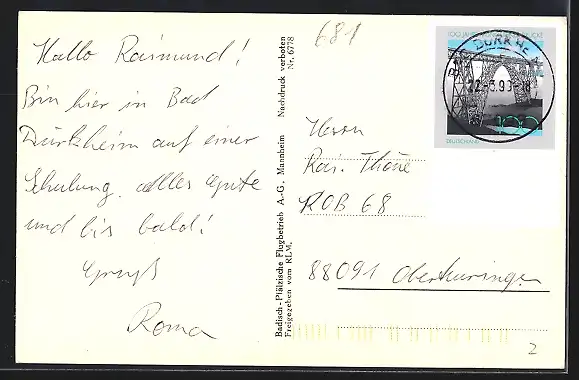 Hallo Raimund!
Bin hier in Bad
Dürkheim auf einer
Schulung. Alles Gute
und bis bald!
Gruß
Roma
Badisch-Pfälzische Flugbetrieb A.-G., Mannheim Nachdruck verboten
Freigegeben vom RLM. Nr. 6778
681
100
DEUTSCHLAND
BAD DÜRKH
Herrn
Rai. Thöne
ROB 68
88091 Oberteuringen
2